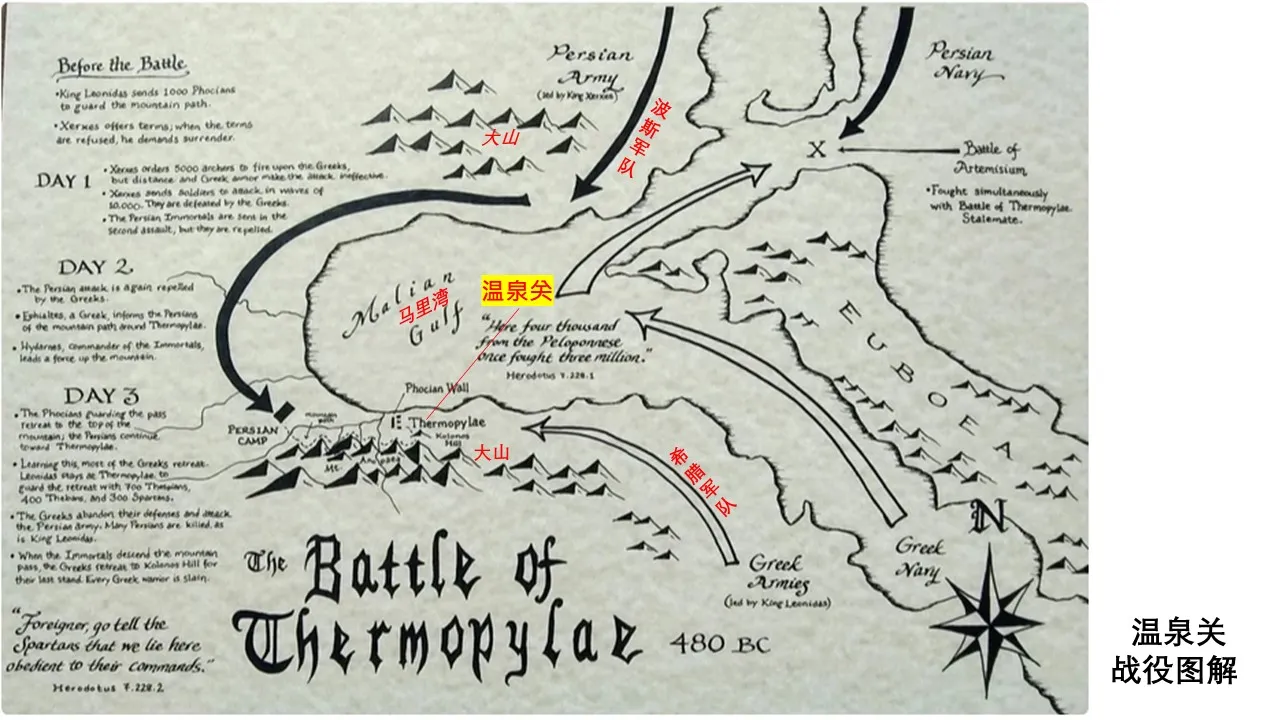 Before the Battle
•King Leonidas sends 1000 Phocians
to guard the mountain path.
•Xerxes offers terms; when the terms
are refused, he demands surrender.
DAY 1
•Xerxes orders 5000 archers to fire upon the Greeks,
but distance and Greek armor make the attack ineffective.
•Xerxes sends soldiers to attack in waves of
10,000. They are defeated by the Greeks.
•The Persian Immortals are sent in the
second assault, but they are repelled.
DAY 2
•The Persian attack is again repelled
by the Greeks.
•Ephialtes, a Greek, informs the Persians
of the mountain path around Thermopylae.
•Hydarnes, commander of the Immortals,
leads a force up the mountain.
DAY 3
•The Phocians guarding the pass
retreat to the top of the
mountain; the Persians continue
toward Thermopylae.
•Learning this, most of the Greeks retreat.
Leonidas stays at Thermopylae to
guard the retreat with 700 Thespians,
400 Thebans, and 300 Spartans.
•The Greeks abandon their defenses and attack
the Persian army. Many Persians are killed, as
is King Leonidas.
•When the Immortals descend the mountain
pass, the Greeks retreat to Kolonos Hill for
their last stand. Every Greek warrior is slain.
"Foreigner, go tell the
Spartans that we lie here
obedient to their commands."
Herodotus 7.228.2
Persian
Army
(led by King Xerxes)
波斯军队
大山
Persian
Navy
X
Battle of
Artemisium
•Fought simultaneously
with Battle of Thermopylae.
Stalemate.
Malian
Gulf
马里湾
温泉关
"Here four thousand
from the Peloponnese
once fought three million."
Herodotus 7.228.1
EUBOEA
Phocian Wall
PERSIAN
CAMP
mountain
path
Thermopylae
Kolonos
Hill
Mt.
大山
希腊军队
Greek
Armies
(led by King Leonidas)
Greek
Navy
N
The
Battle of
Thermopylae
480 BC
温泉关
战役图解